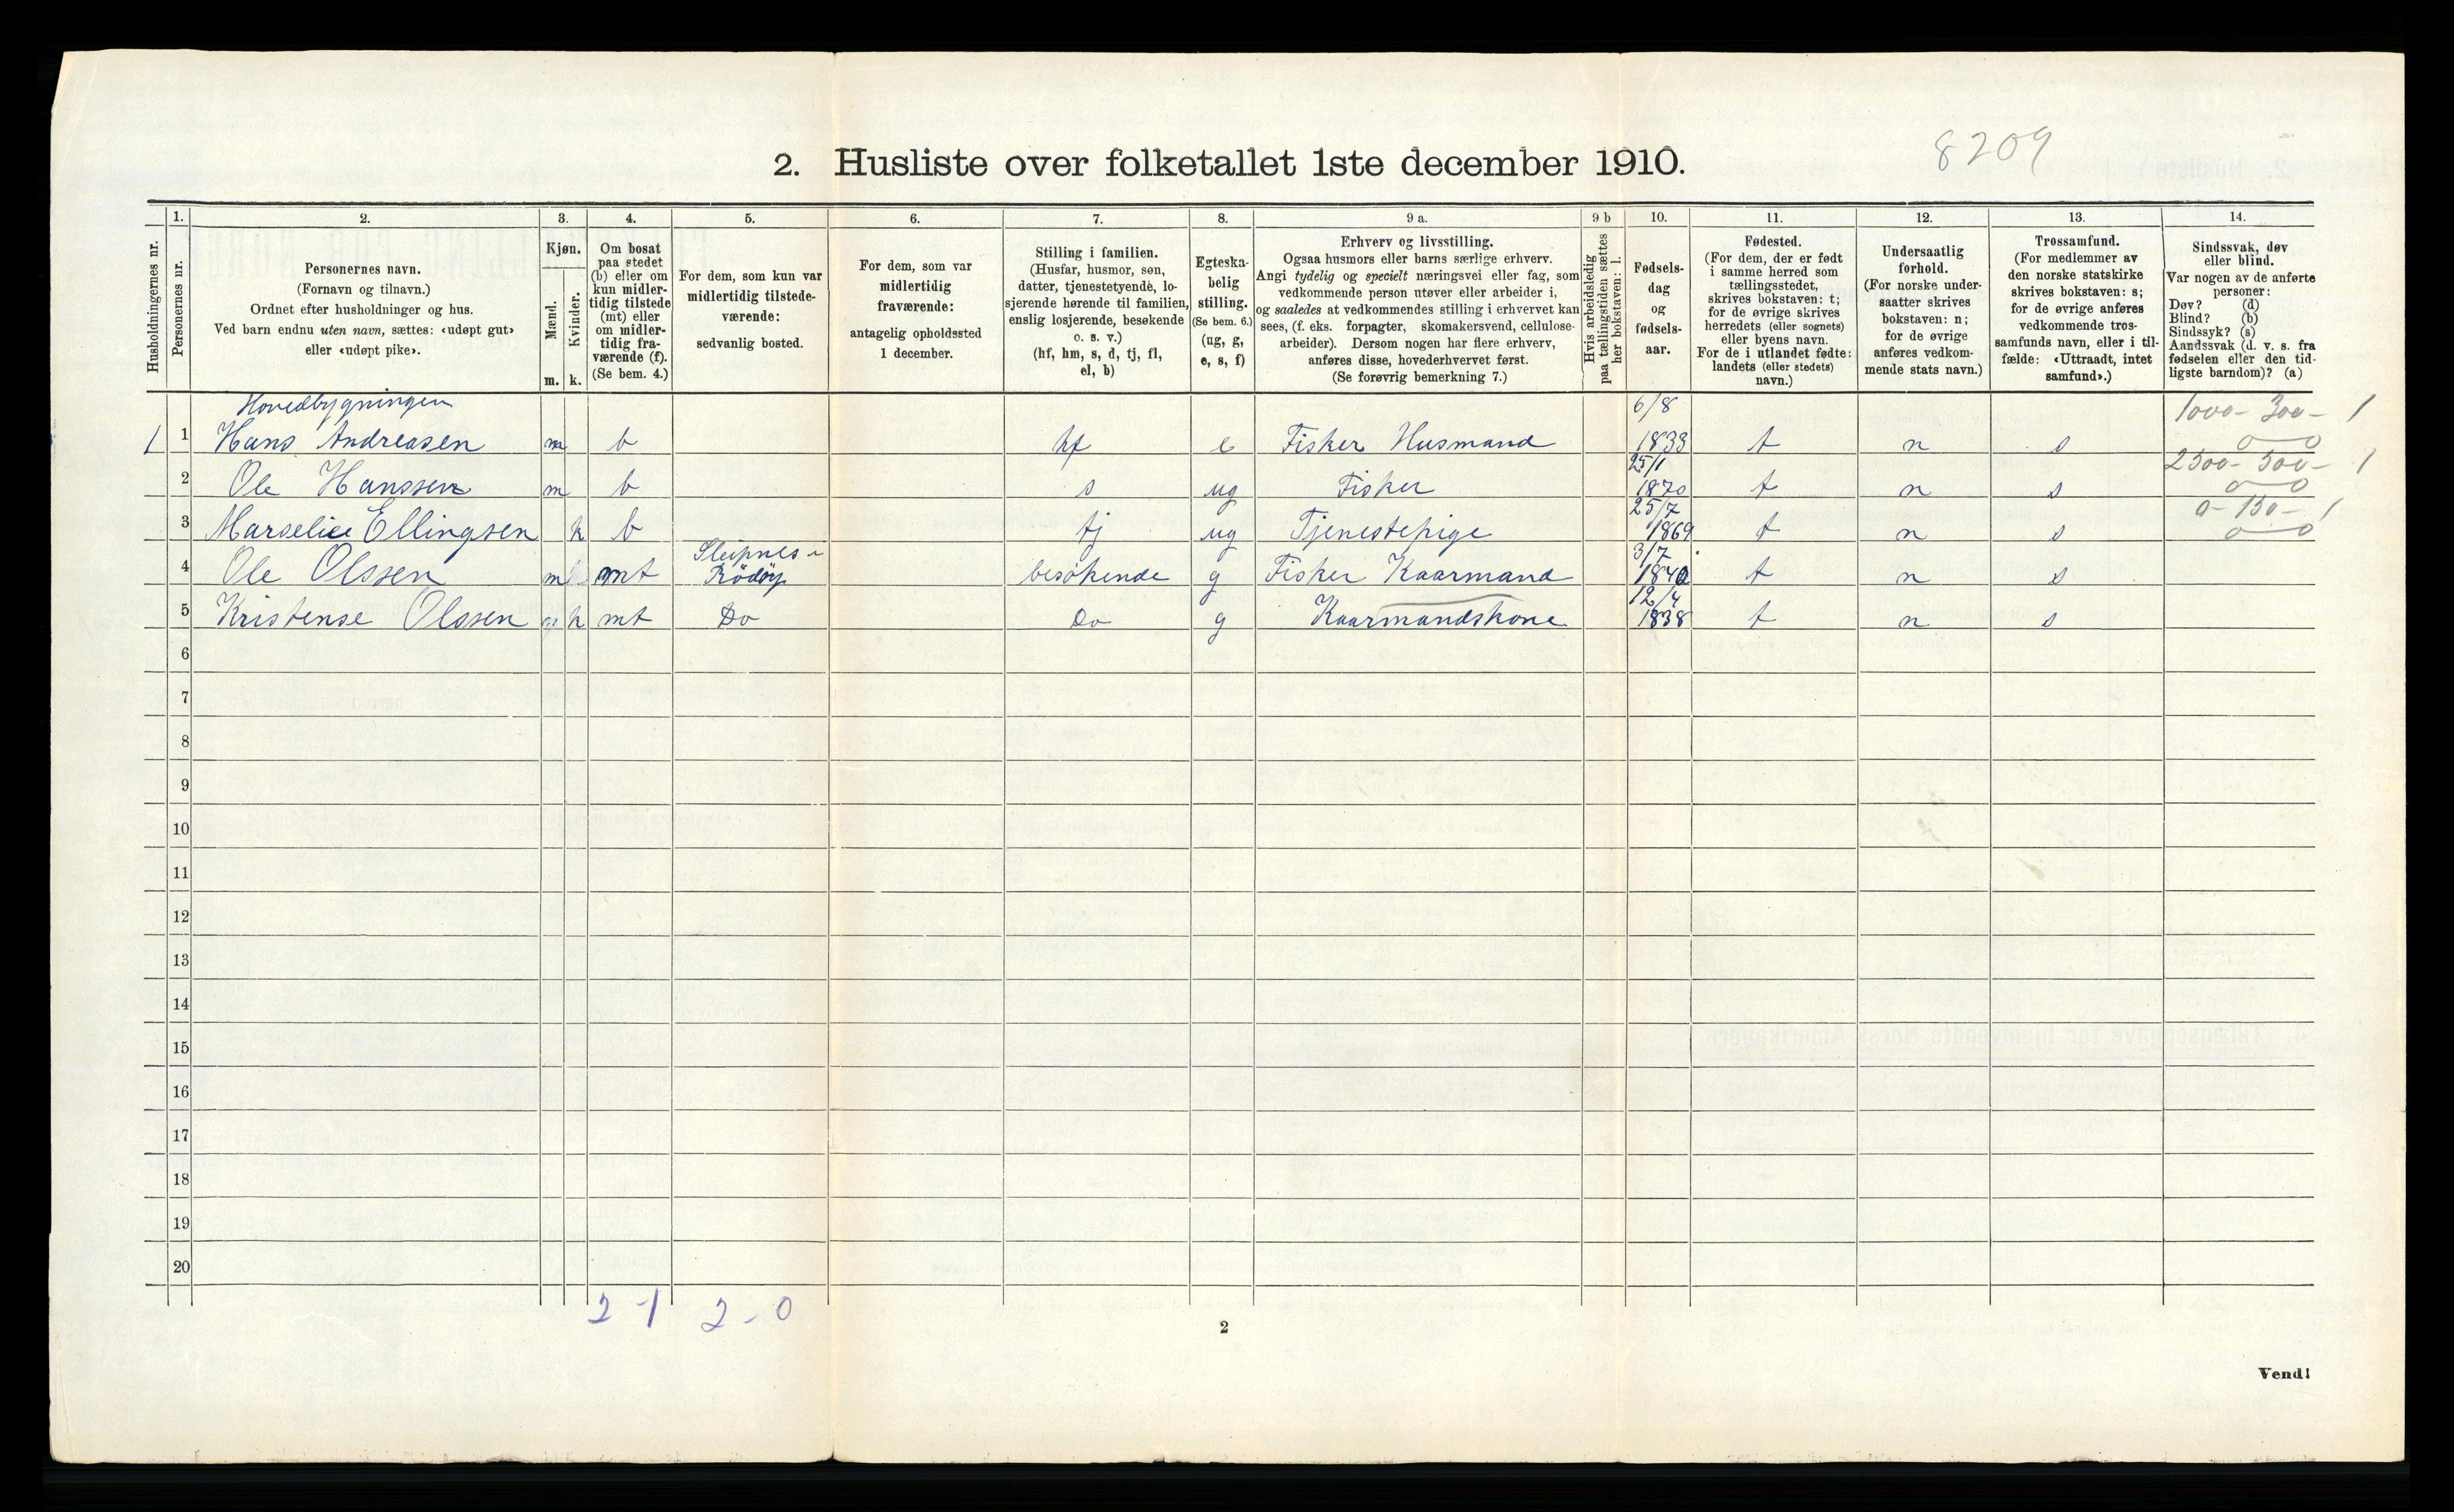 8209
2. Husliste over folketallet 1ste december 1910.
Husholdningernes nr.
1.
Personernes nr.
2.
Personernes navn.
(Fornavn og tilnavn.)
Ordnet efter husholdninger og hus.
Ved barn endnu uten navn, sættes: «udøpt gut»
eller «udøpt pike».
3.
Kjøn.
Mænd.
Kvinder.
m. k.
4.
Om bosat
paa stedet
(b) eller om
kun midler-
tidig tilstede
(mt) eller
om midler-
tidig fra-
værende (f).
(Se bem. 4.)
5.
For dem, som kun var
midlertidig tilstede-
værende:
sedvanlig bosted.
6.
For dem, som var
midlertidig
fraværende:
antagelig opholdssted
1 december.
7.
Stilling i familien.
(Husfar, husmor, søn,
datter, tjenestetyende, lo-
sjerende hørende til familien,
enslig losjerende, besøkende
o. s. v.)
(hf, hm, s, d, tj, fl,
el, b)
8.
Egteska-
belig
stilling.
(Se bem. 6.)
(ug, g,
e, s, f)
9 a.
Erhverv og livsstilling.
Ogsaa husmors eller barns særlige erhverv.
Angi tydelig og specielt næringsvei eller fag, som
vedkommende person utøver eller arbeider i,
og saaledes at vedkommendes stilling i erhvervet kan
sees, (f. eks. forpagter, skomakersvend, cellulose-
arbeider). Dersom nogen har flere erhverv,
anføres disse, hovederhvervet først.
(Se forøvrig bemerkning 7.)
9 b
Hvis arbeidsledig
paa tællingstiden sættes
her bokstaven: l.
10.
Fødsels-
dag
og
fødsels-
aar.
11.
Fødested.
(For dem, der er født
i samme herred som
tællingsstedet,
skrives bokstaven: t;
for de øvrige skrives
herredets (eller sognets)
eller byens navn.
For de i utlandet fødte:
landets (eller stedets)
navn.)
12.
Undersaatlig
forhold.
(For norske under-
saatter skrives
bokstaven: n;
for de øvrige
anføres vedkom-
mende stats navn.)
13.
Trossamfund.
(For medlemmer av
den norske statskirke
skrives bokstaven: s;
for de øvrige anføres
vedkommende tros-
samfunds navn, eller i til-
fælde: «Uttraadt, intet
samfund».)
14.
Sindssvak, døv
eller blind.
Var nogen av de anførte
personer:
Døv? (d)
Blind? (b)
Sindssyk? (s)
Aandssvak (d. v. s. fra
fødselen eller den tid-
ligste barndom)? (a)
Hovedbygningen 6/8 1000- 300- 1
1 1 Hans Andreasen m b hf e Fisker Husmand 1833 t n s 0 0
25/1 2500- 500- 1
2 Ole Hanssen m b s ug Fisker 1870 t n s 0 0
25/7 0- 150- 1
3 Marselie Ellingsen k b tj ug Tjenestepige 1869 t n s 0 0
Sleipnes i 3/7
4 Ole Olssen m mt Rödöy besökende g Fisker Kaarmand 1840 t n s
12/4
5 Kristense Olssen k mt Do Do g Kaarmandskone 1838 t n s
6
7
8
9
10
11
12
13
14
15
16
17
18
19
20
2-1 2-0
2
Vend!